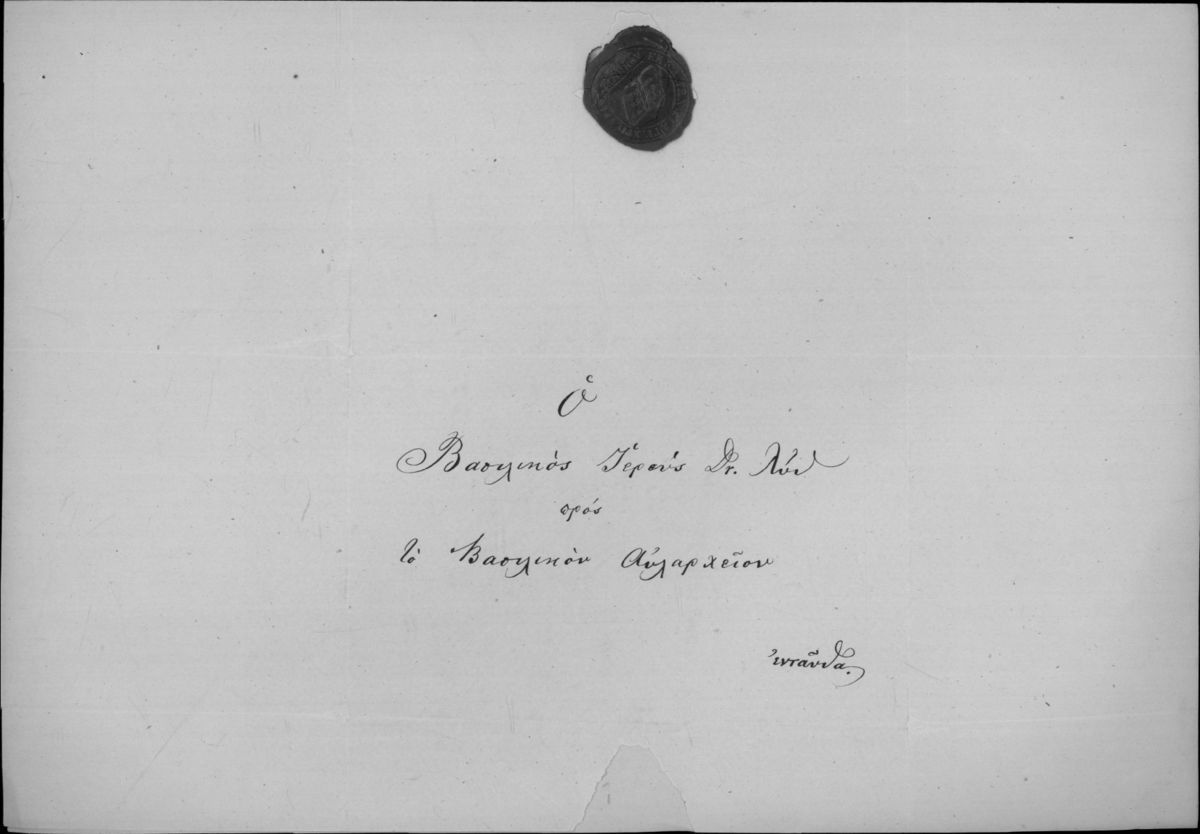 Ὁ
Βασιλικὸς Ἱερεύς Dr. Λύθ
πρός
τὸ Βασιλικὸν Αὐλαρχεῖον
ἐνταῦθα.